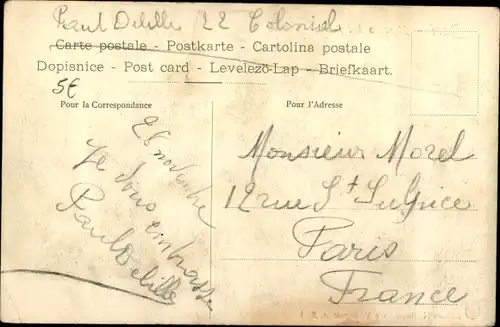 Paul Delille 22 Colonial
Carte postale - Postkarte - Cartolina postale
Dopisnice - Post card - Levelező-Lap - Briefkaart.
5€
Pour la Correspondance
Pour l'Adresse
28 novembre
Je vous embrasse
Paul Delille
Monsieur Morel
12 rue St Sulpice
Paris
France